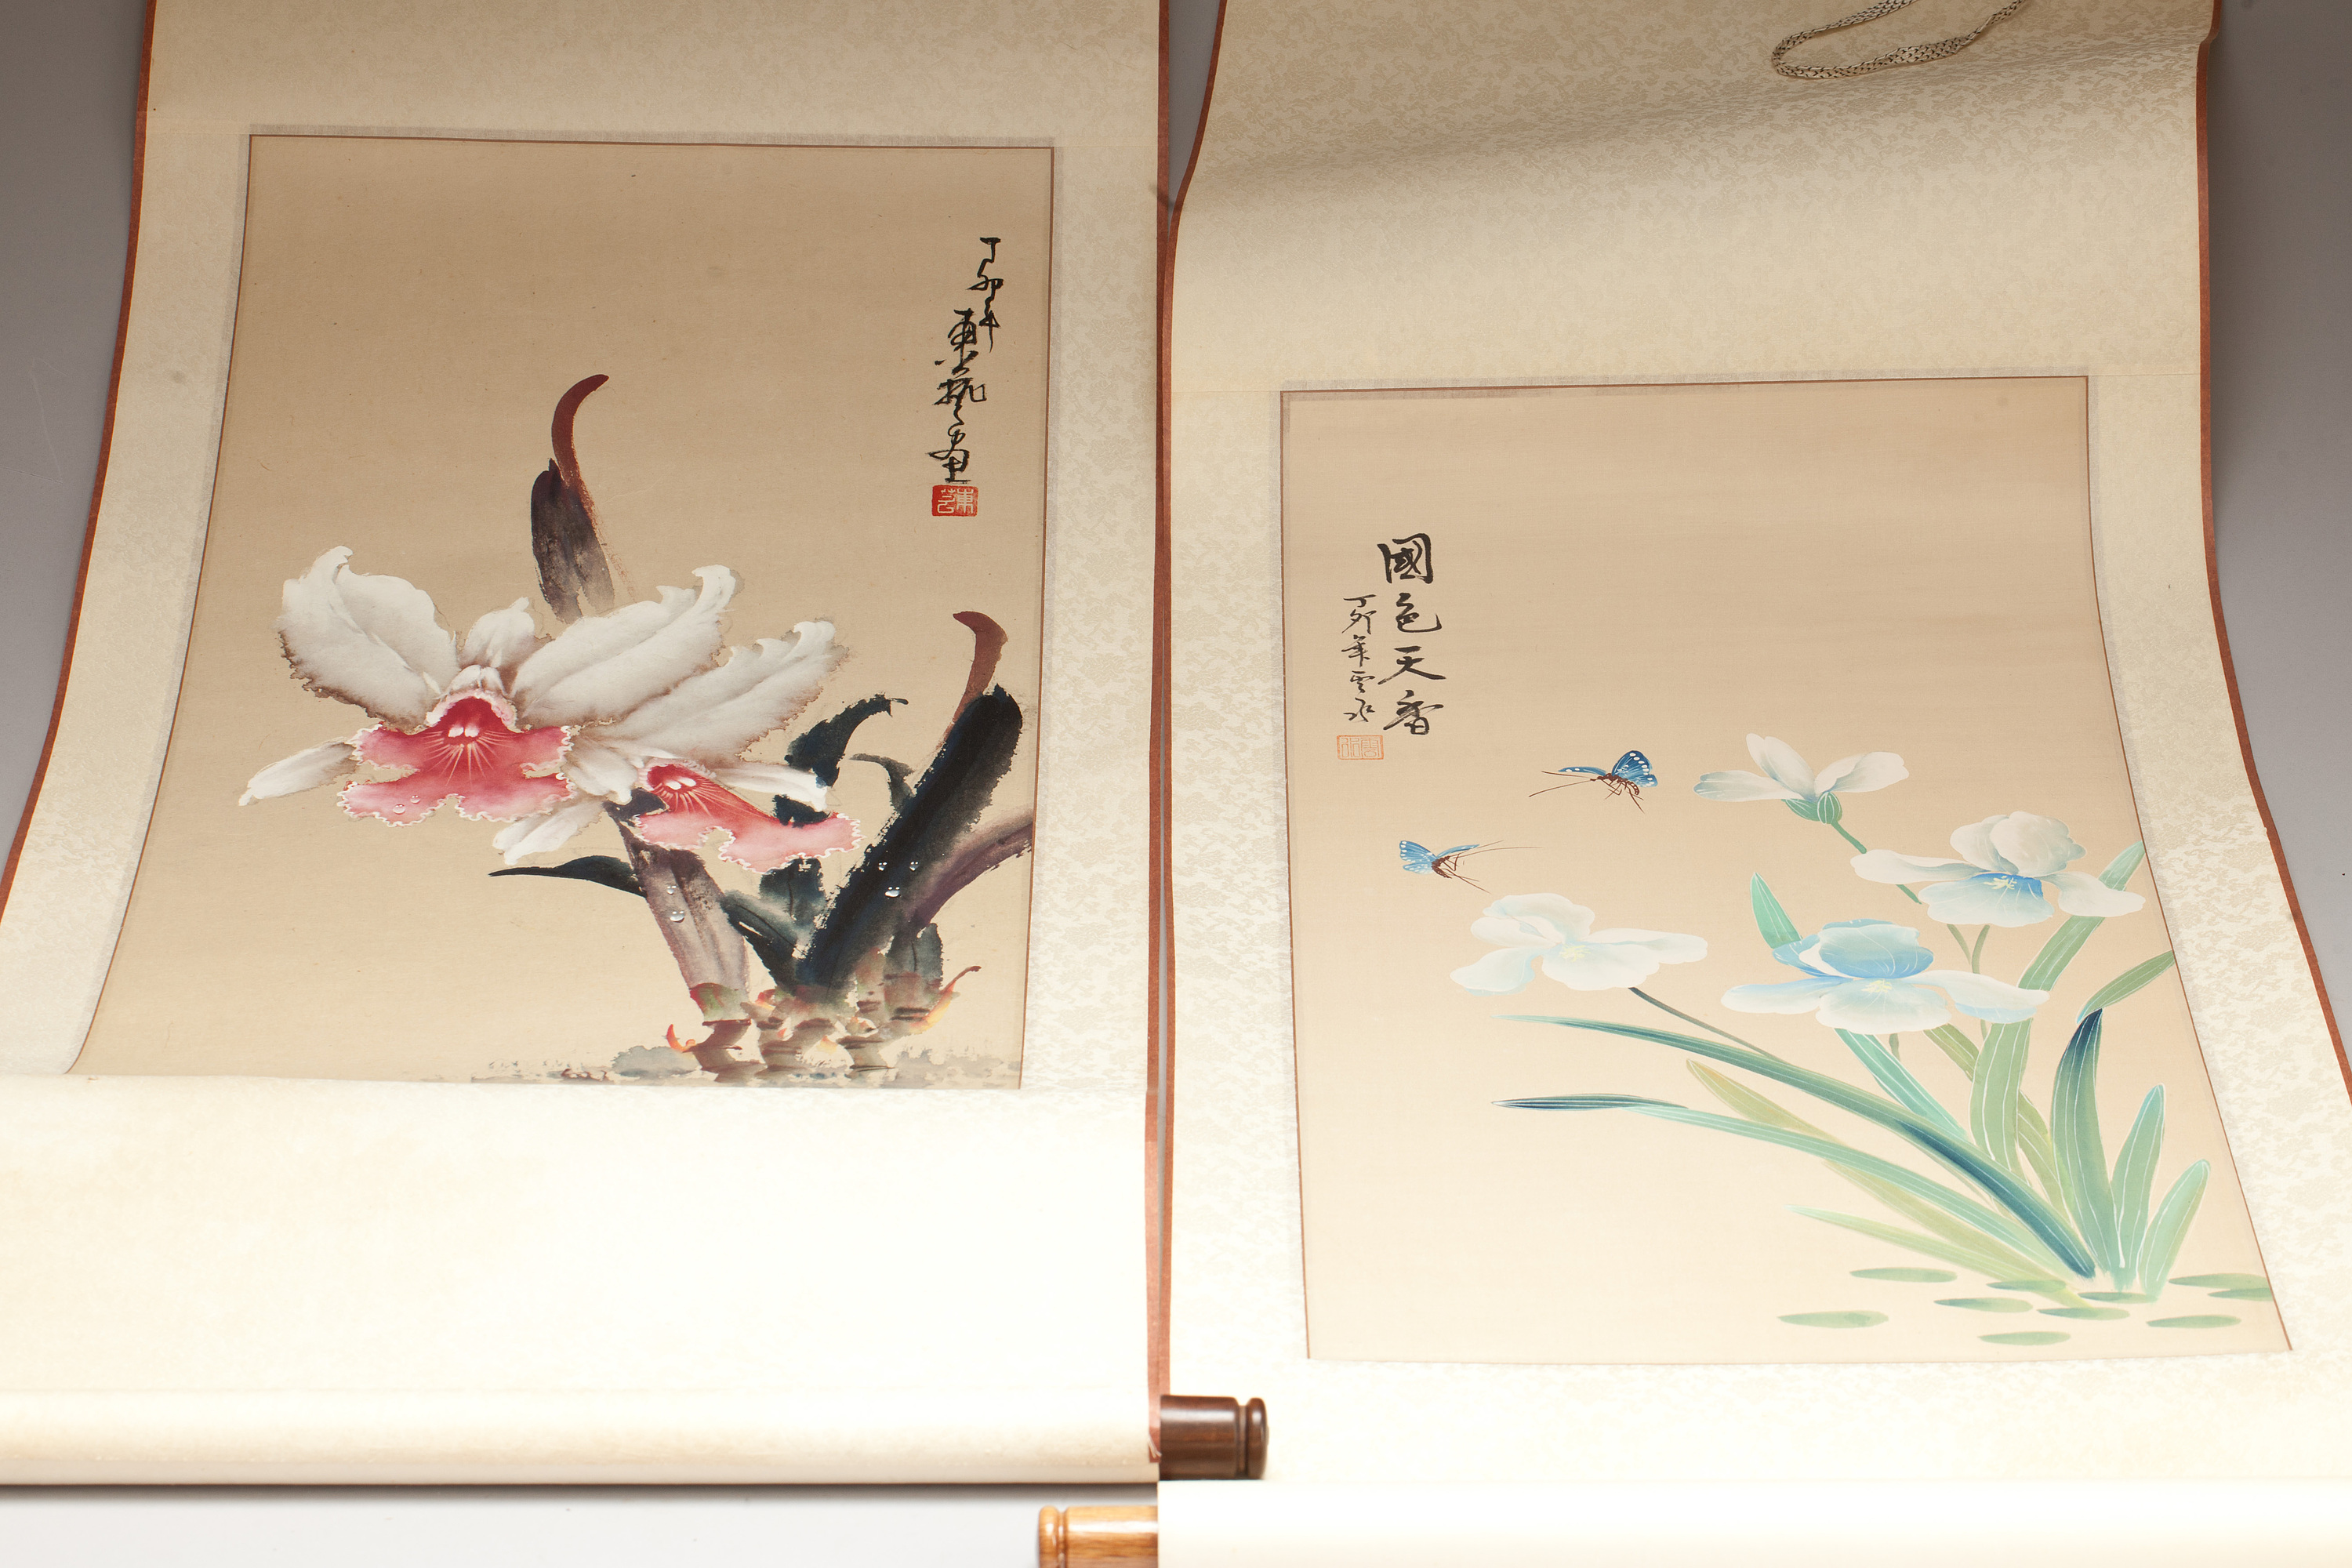 丁卯年
東藝畫
國色天香
丁卯年雲水